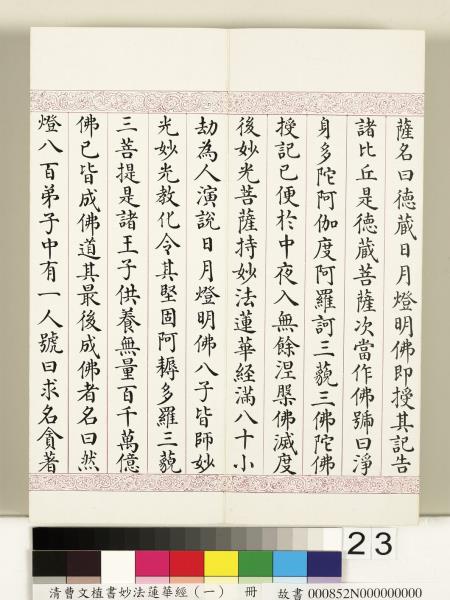 薩名曰德藏日月燈明佛即授其記告
諸比丘是德藏菩薩次當作佛號曰淨
身多陀阿伽度阿羅訶三藐三佛陀佛
授記已便於中夜入無餘涅槃佛滅度
後妙光菩薩持妙法蓮華經滿八十小
劫為人演說日月燈明佛八子皆師妙
光妙光教化令其堅固阿耨多羅三藐
三菩提是諸王子供養無量百千萬億
佛已皆成佛道其最後成佛者名曰然
燈八百弟子中有一人號曰求名貪著
23
清曹文植書妙法蓮華經(一) 冊 故書 000852N000000000